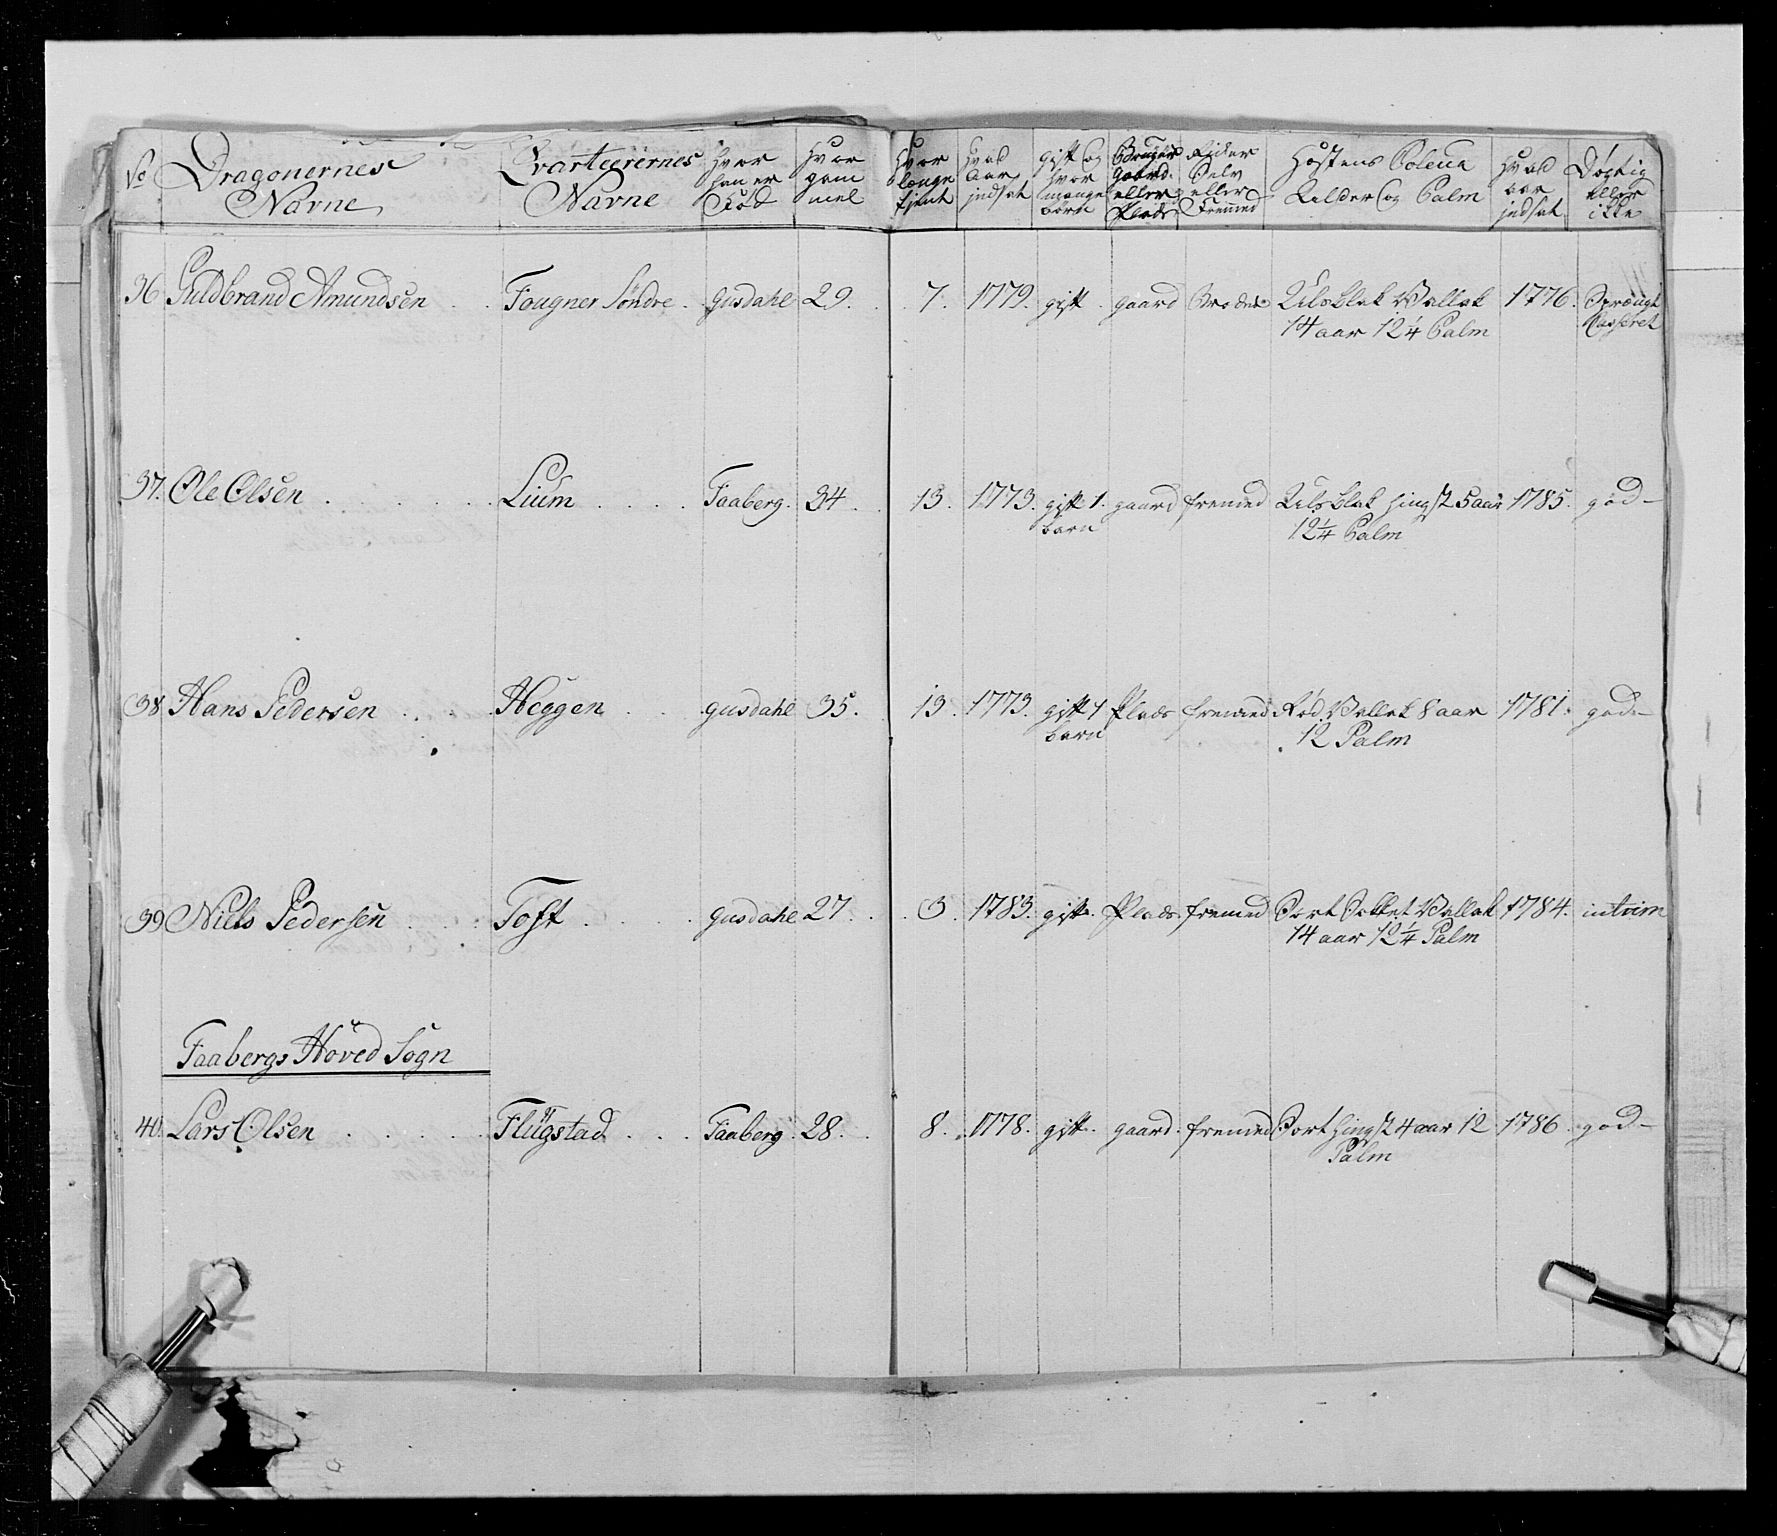 No Dragonernes Navne | Qvarteerernes Navne | Hvor han er Fød | Hvor gam mel | Hvor længe tjent | Hvad Aar indsat | gift Og hvor mange børn | Bruger Gaard eller Plads | Rider Selv eller Fremed | Hæstens Coleur Alder Og Palm | Hvad aar indsat | Dygtig eller ikke
36 Guldbrand Amundsen . . Fougner Søndre . Gusdahl 29. . 7. 1779. gift . gaard Ulsblak Vallak 1776. Sprængt
14 aar 12¼ Palm Casseret
37. Ole Olsen . . . . Lium . . . . Faaberg. 34 . 13. 1773. gift 1. gaard fremed Ulsblak Hingst 5 aar 1785. god—
barn 12¼ Palm
38 Hans Pedersen . . . Heggen . . gusdahl 35. . 13. 1773. gift 1 Plads fremed Rød Vallak 8 aar 1781. god—
barn 12 Palm
39 Niels Pedersen . . . Toft . . . . gusdahl 27 . . . 3. 1783. gift. Plads fremed Sort Vallak 1784. intrim
14 aar 12¼ Palm
Faabergs Hoved Sogn
40. Lars Olsen . . . . Flugstad . . . Faaberg . 28. . 8. 1778. gift. gaard. fremed Sort Hingst 4 aar 12 1786. god—
Palm